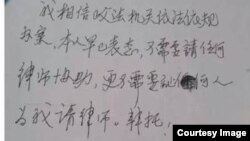 我相信政法机关依法依规
办案，本人早已表态，不需要请任何
律师协助，更不需要任何人
为我请律师。拜托
Courtesy Image